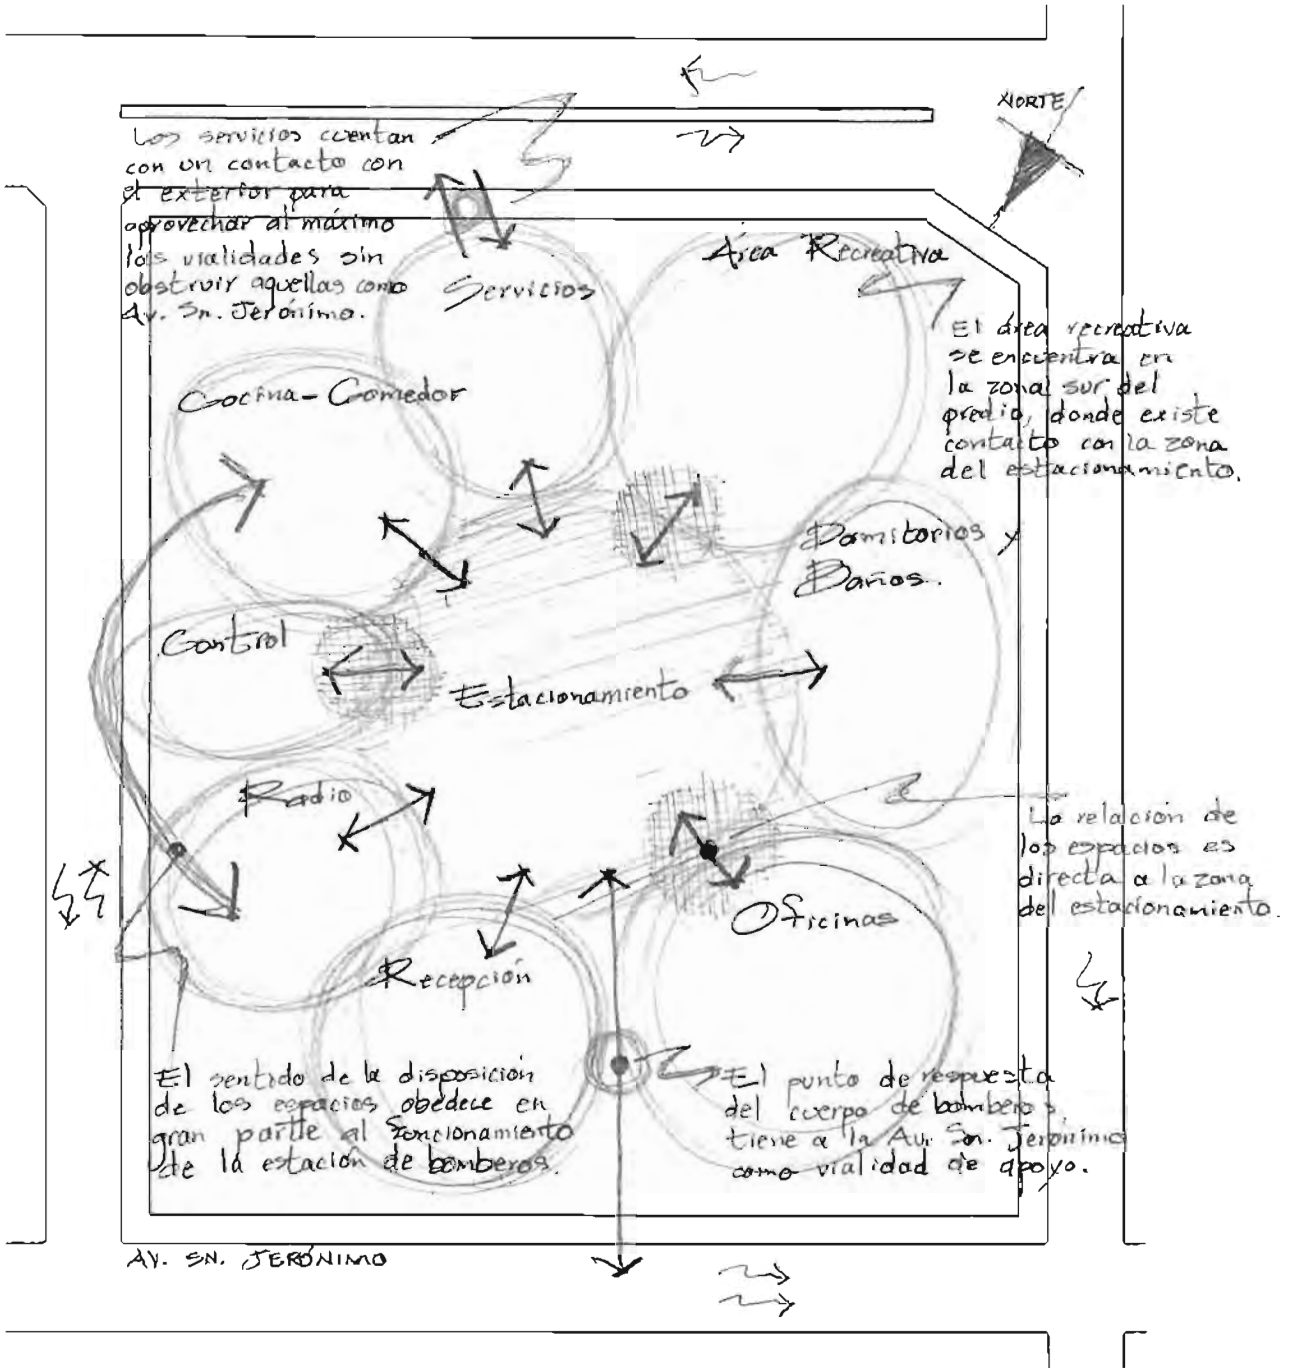 NORTE
Los servicios cuentan
con un contacto con
el exterior para
aprovechar al máximo
las vialidades sin
obstruir aquellas como
Av. Sn. Jerónimo.
Servicios
Área Recreativa
El área recreativa
se encuentra en
la zona sur del
predio, donde existe
contacto con la zona
del estacionamiento.
Cocina-Comedor
Dormitorios y
Baños.
Control
Estacionamiento
Radio
La relación de
los espacios es
directa a la zona
del estacionamiento.
Oficinas
Recepción
El sentido de la disposición
de los espacios obedece en
gran parte al funcionamiento
de la estación de bomberos.
El punto de respuesta
del cuerpo de bomberos,
tiene a la Av. Sn. Jerónimo
como vialidad de apoyo.
AV. SN. JERÓNIMO